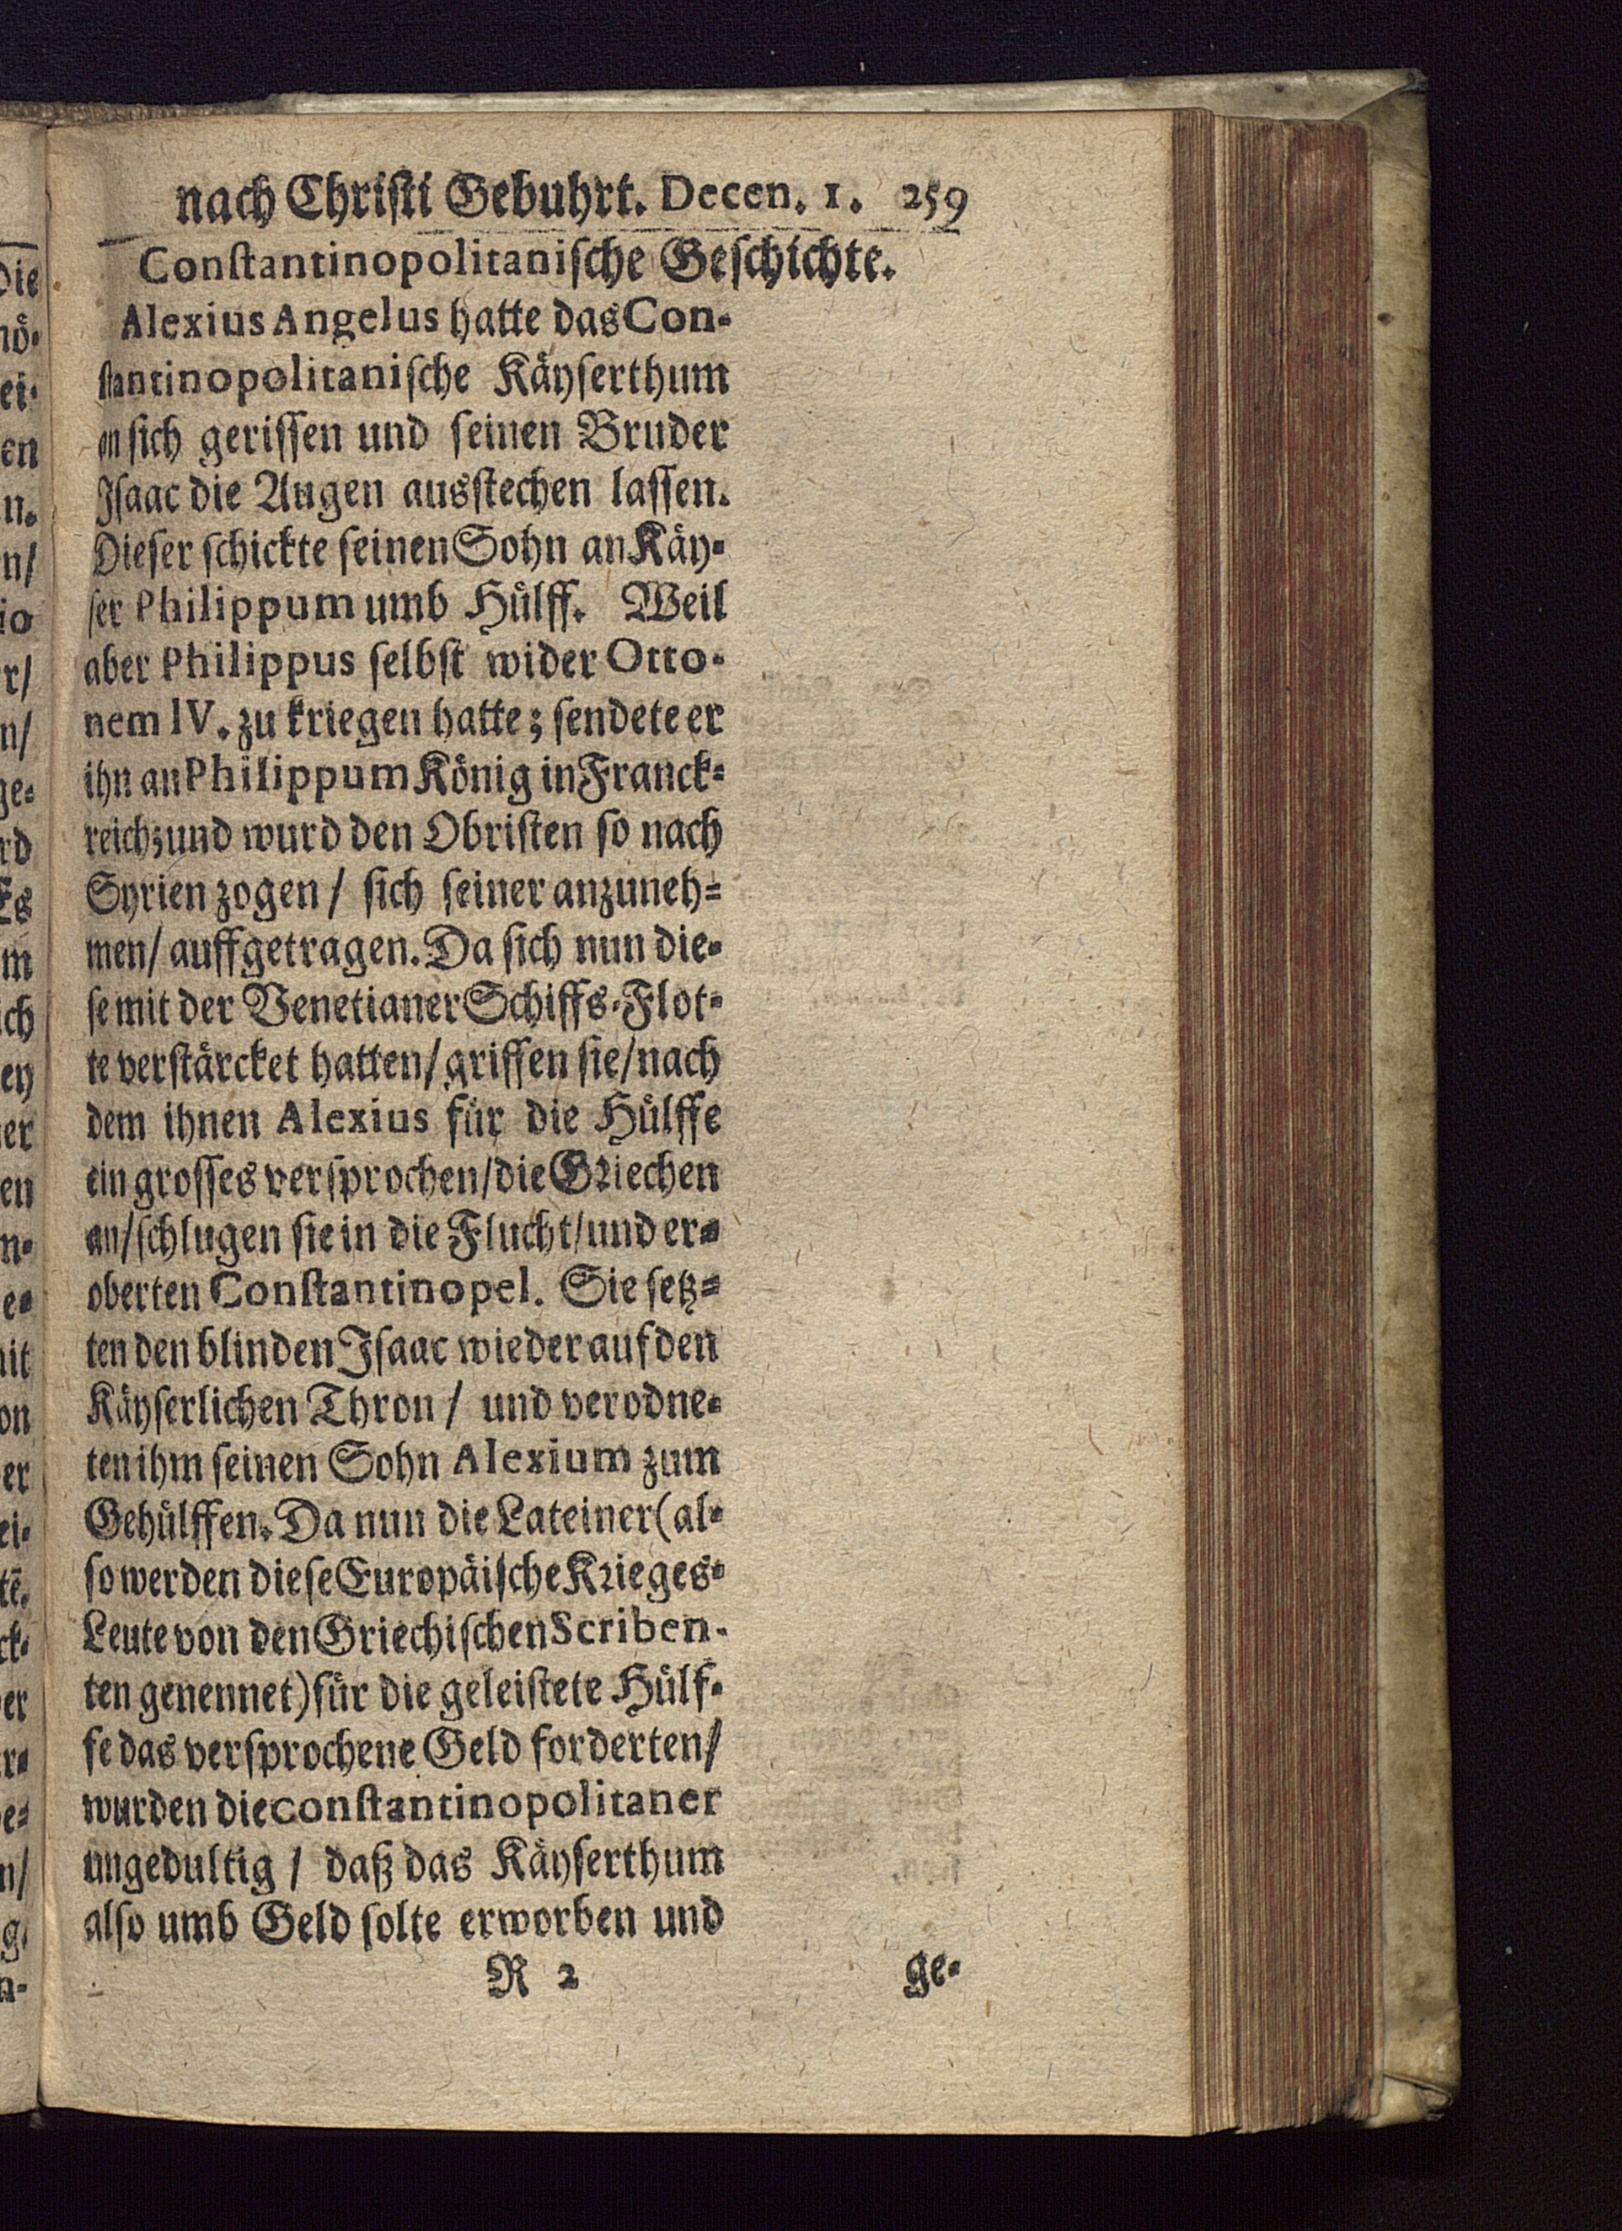 nach Christi Gebuhrt. Decen. 1. 259
Constantinopolitanische Geschichte.
Alexius Angelus hatte das Con-
stantinopolitanische Käyserthum
an sich gerissen und seinen Bruder
Isaac die Augen ausstechen lassen.
Dieser schickte seinen Sohn an Käy-
ser Philippum umb Hülff. Weil
aber Philippus selbst wider Otto-
nem IV. zu kriegen hatte; sendete er
ihn an Philippum König in Franck-
reich; und wurd den Obristen so nach
Syrien zogen / sich seiner anzuneh-
men / auffgetragen. Da sich nun die-
se mit der Venetianer Schiffs-Flot-
te verstärcket hatten / griffen sie / nach
dem ihnen Alexius für die Hülffe
ein grosses versprochen / die Griechen
an / schlugen sie in die Flucht / und er-
oberten Constantinopel. Sie setz-
ten den blinden Isaac wieder auf den
Käyserlichen Thron / und verodne-
ten ihm seinen Sohn Alexium zum
Gehülffen. Da nun die Lateiner (al-
so werden diese Europäische Krieges-
Leute von den Griechischen Scriben-
ten genennet) für die geleistete Hülf-
fe das versprochene Geld forderten /
wurden die constantinopolitaner
ungedultig / daß das Käyserthum
also umb Geld solte erworben und
R 2 ge-